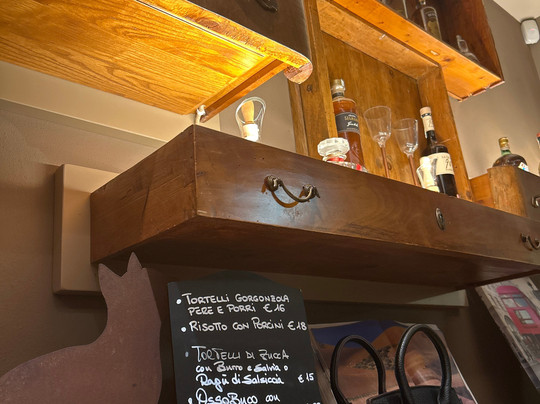 • TORTELLI GORGONZOLA
PERE E PORRI € 16
• RISOTTO CON PORCINI € 18
• TORTELLI DI ZUCCA
CON BURRO e SALVIA o
RAGÙ di SALSICCIA € 15
• OSSOBUCO CON